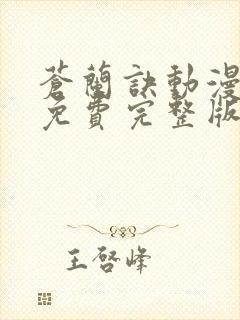 蒼蘭訣動漫
免費完整版
王啓峰